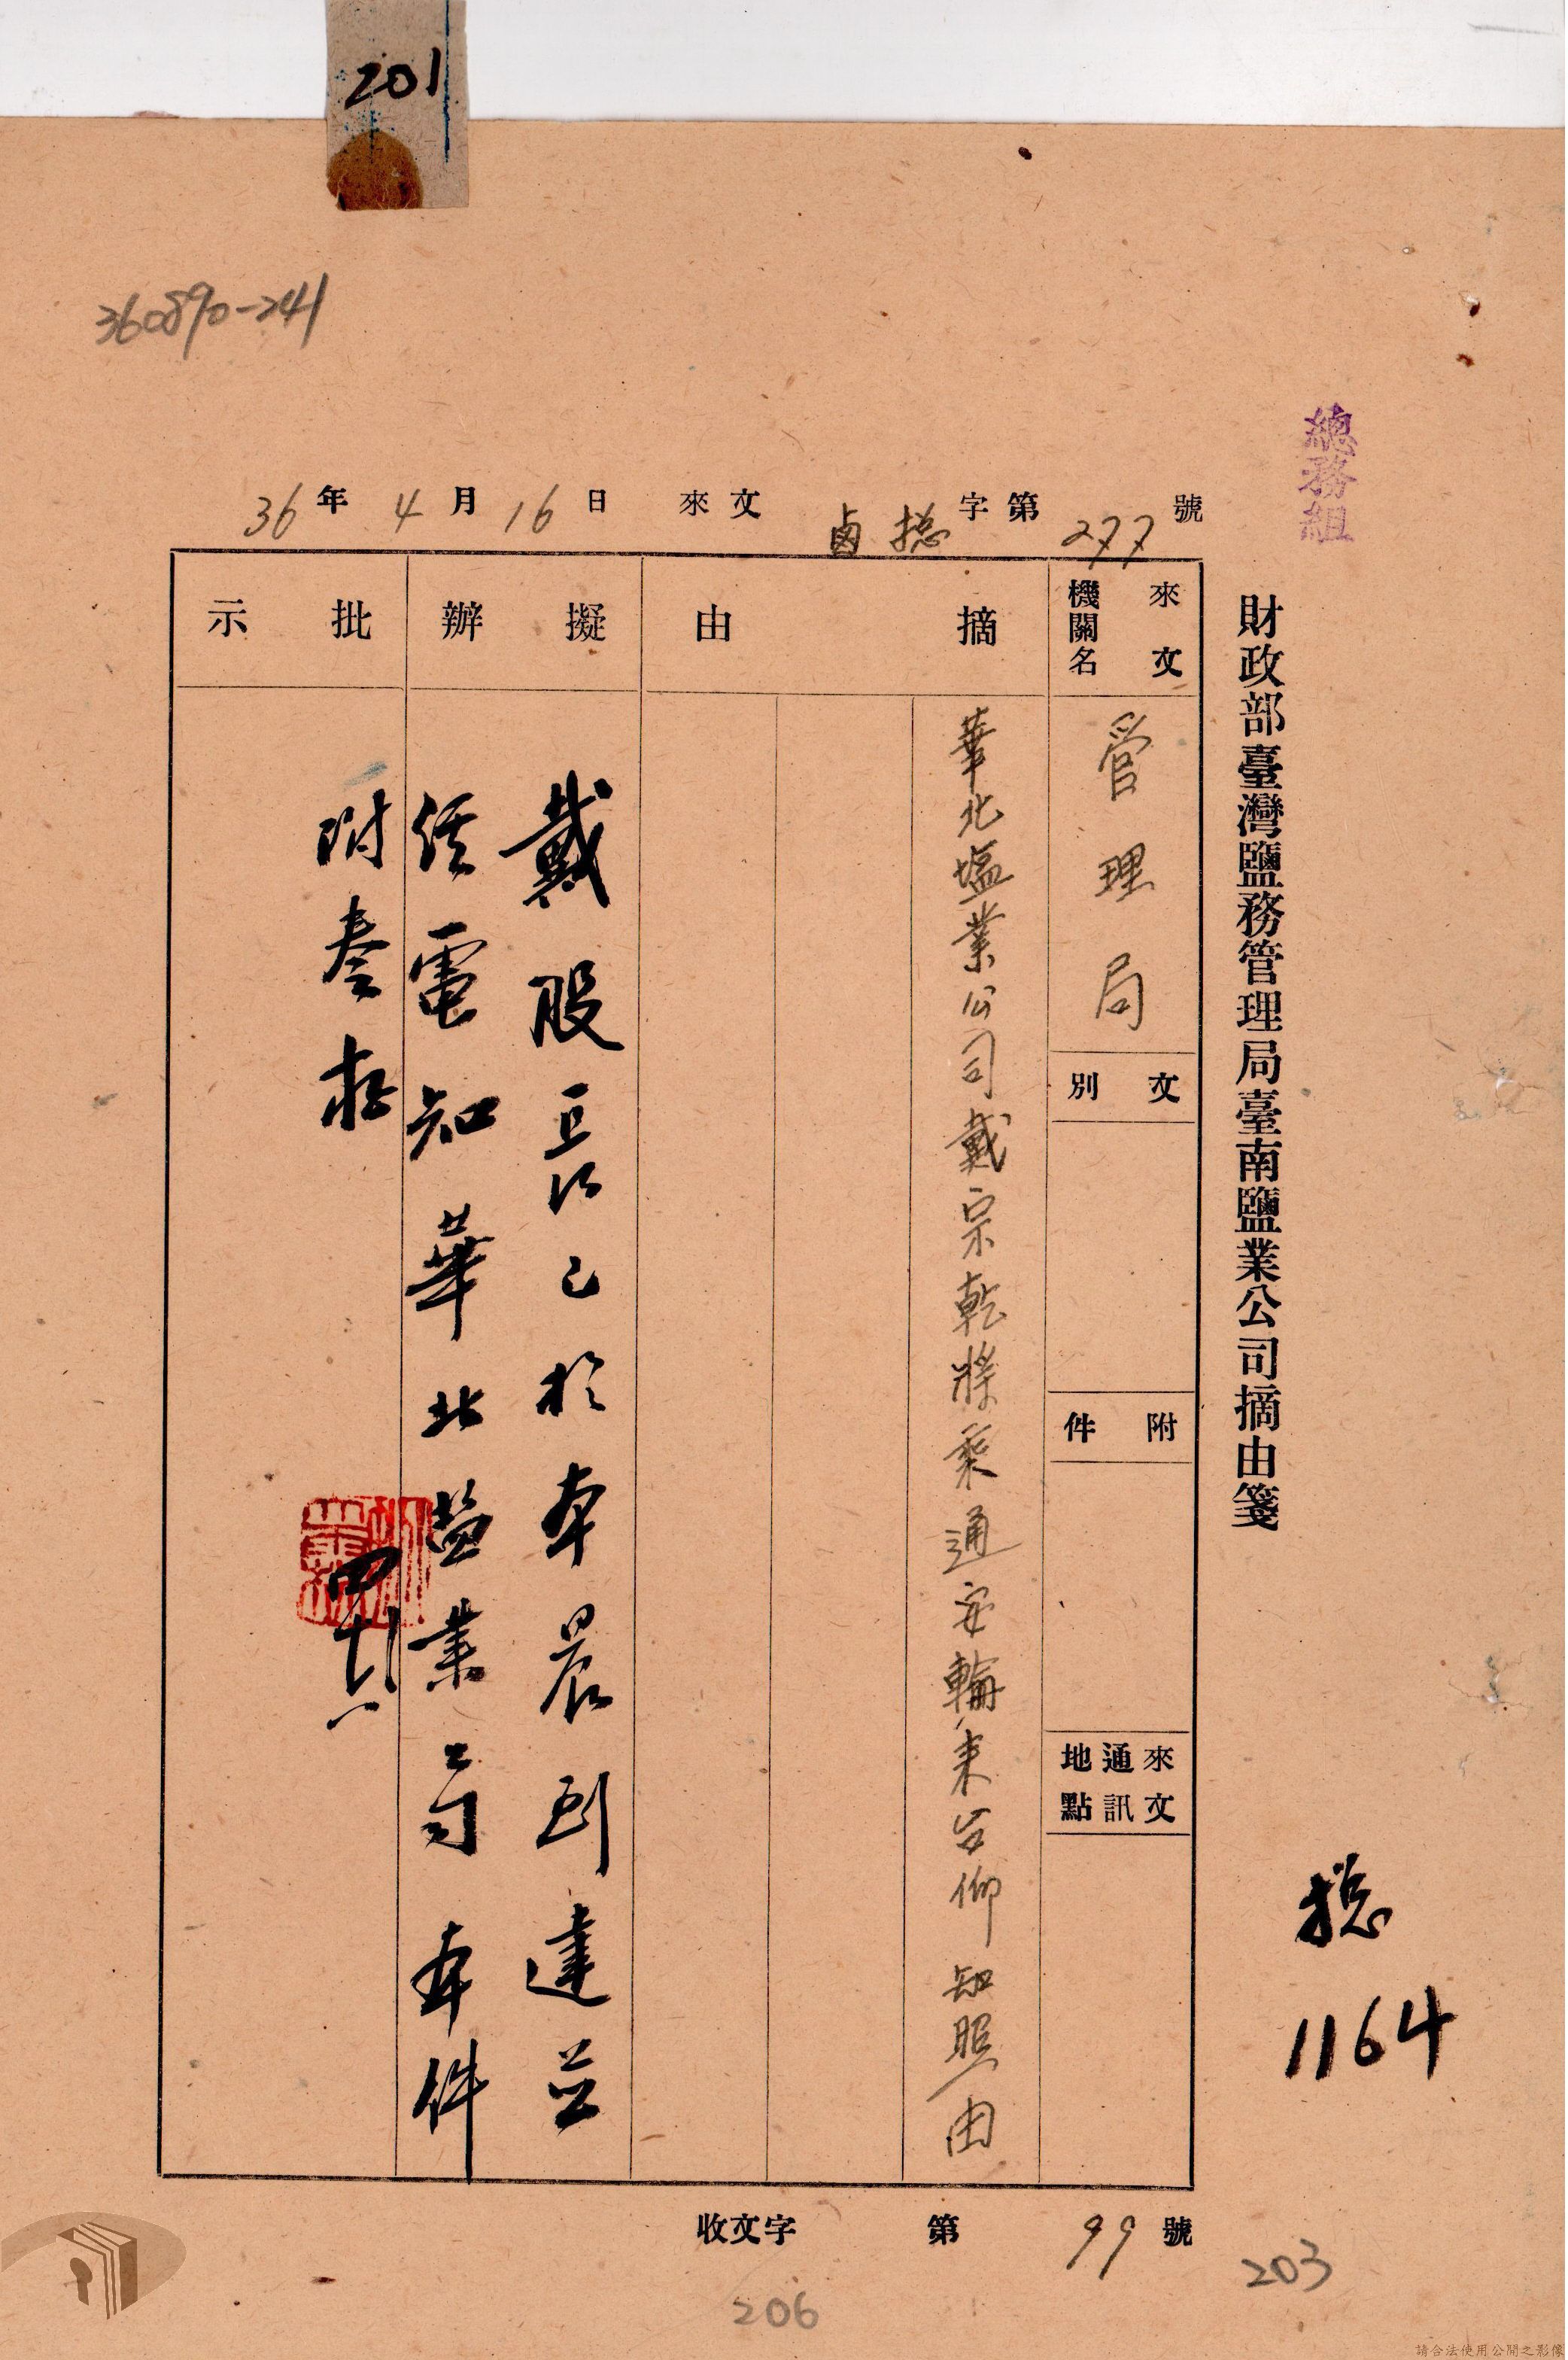 201
360890-241
總務組
財政部臺灣鹽務管理局臺南鹽業公司摘由箋
總
1164
36年4月16日 來文 鹵總字第277號
來文機關名
管理局
文別
附件
來文通訊地點
摘由
華北塩業公司戴宗乾將乘通安輪来台仰知照由
擬辦
戴股長已於本晨到達並
經電知華北塩業公司本件
批示
附卷存
收文字 第99號
203
206
請合法使用公開之影像